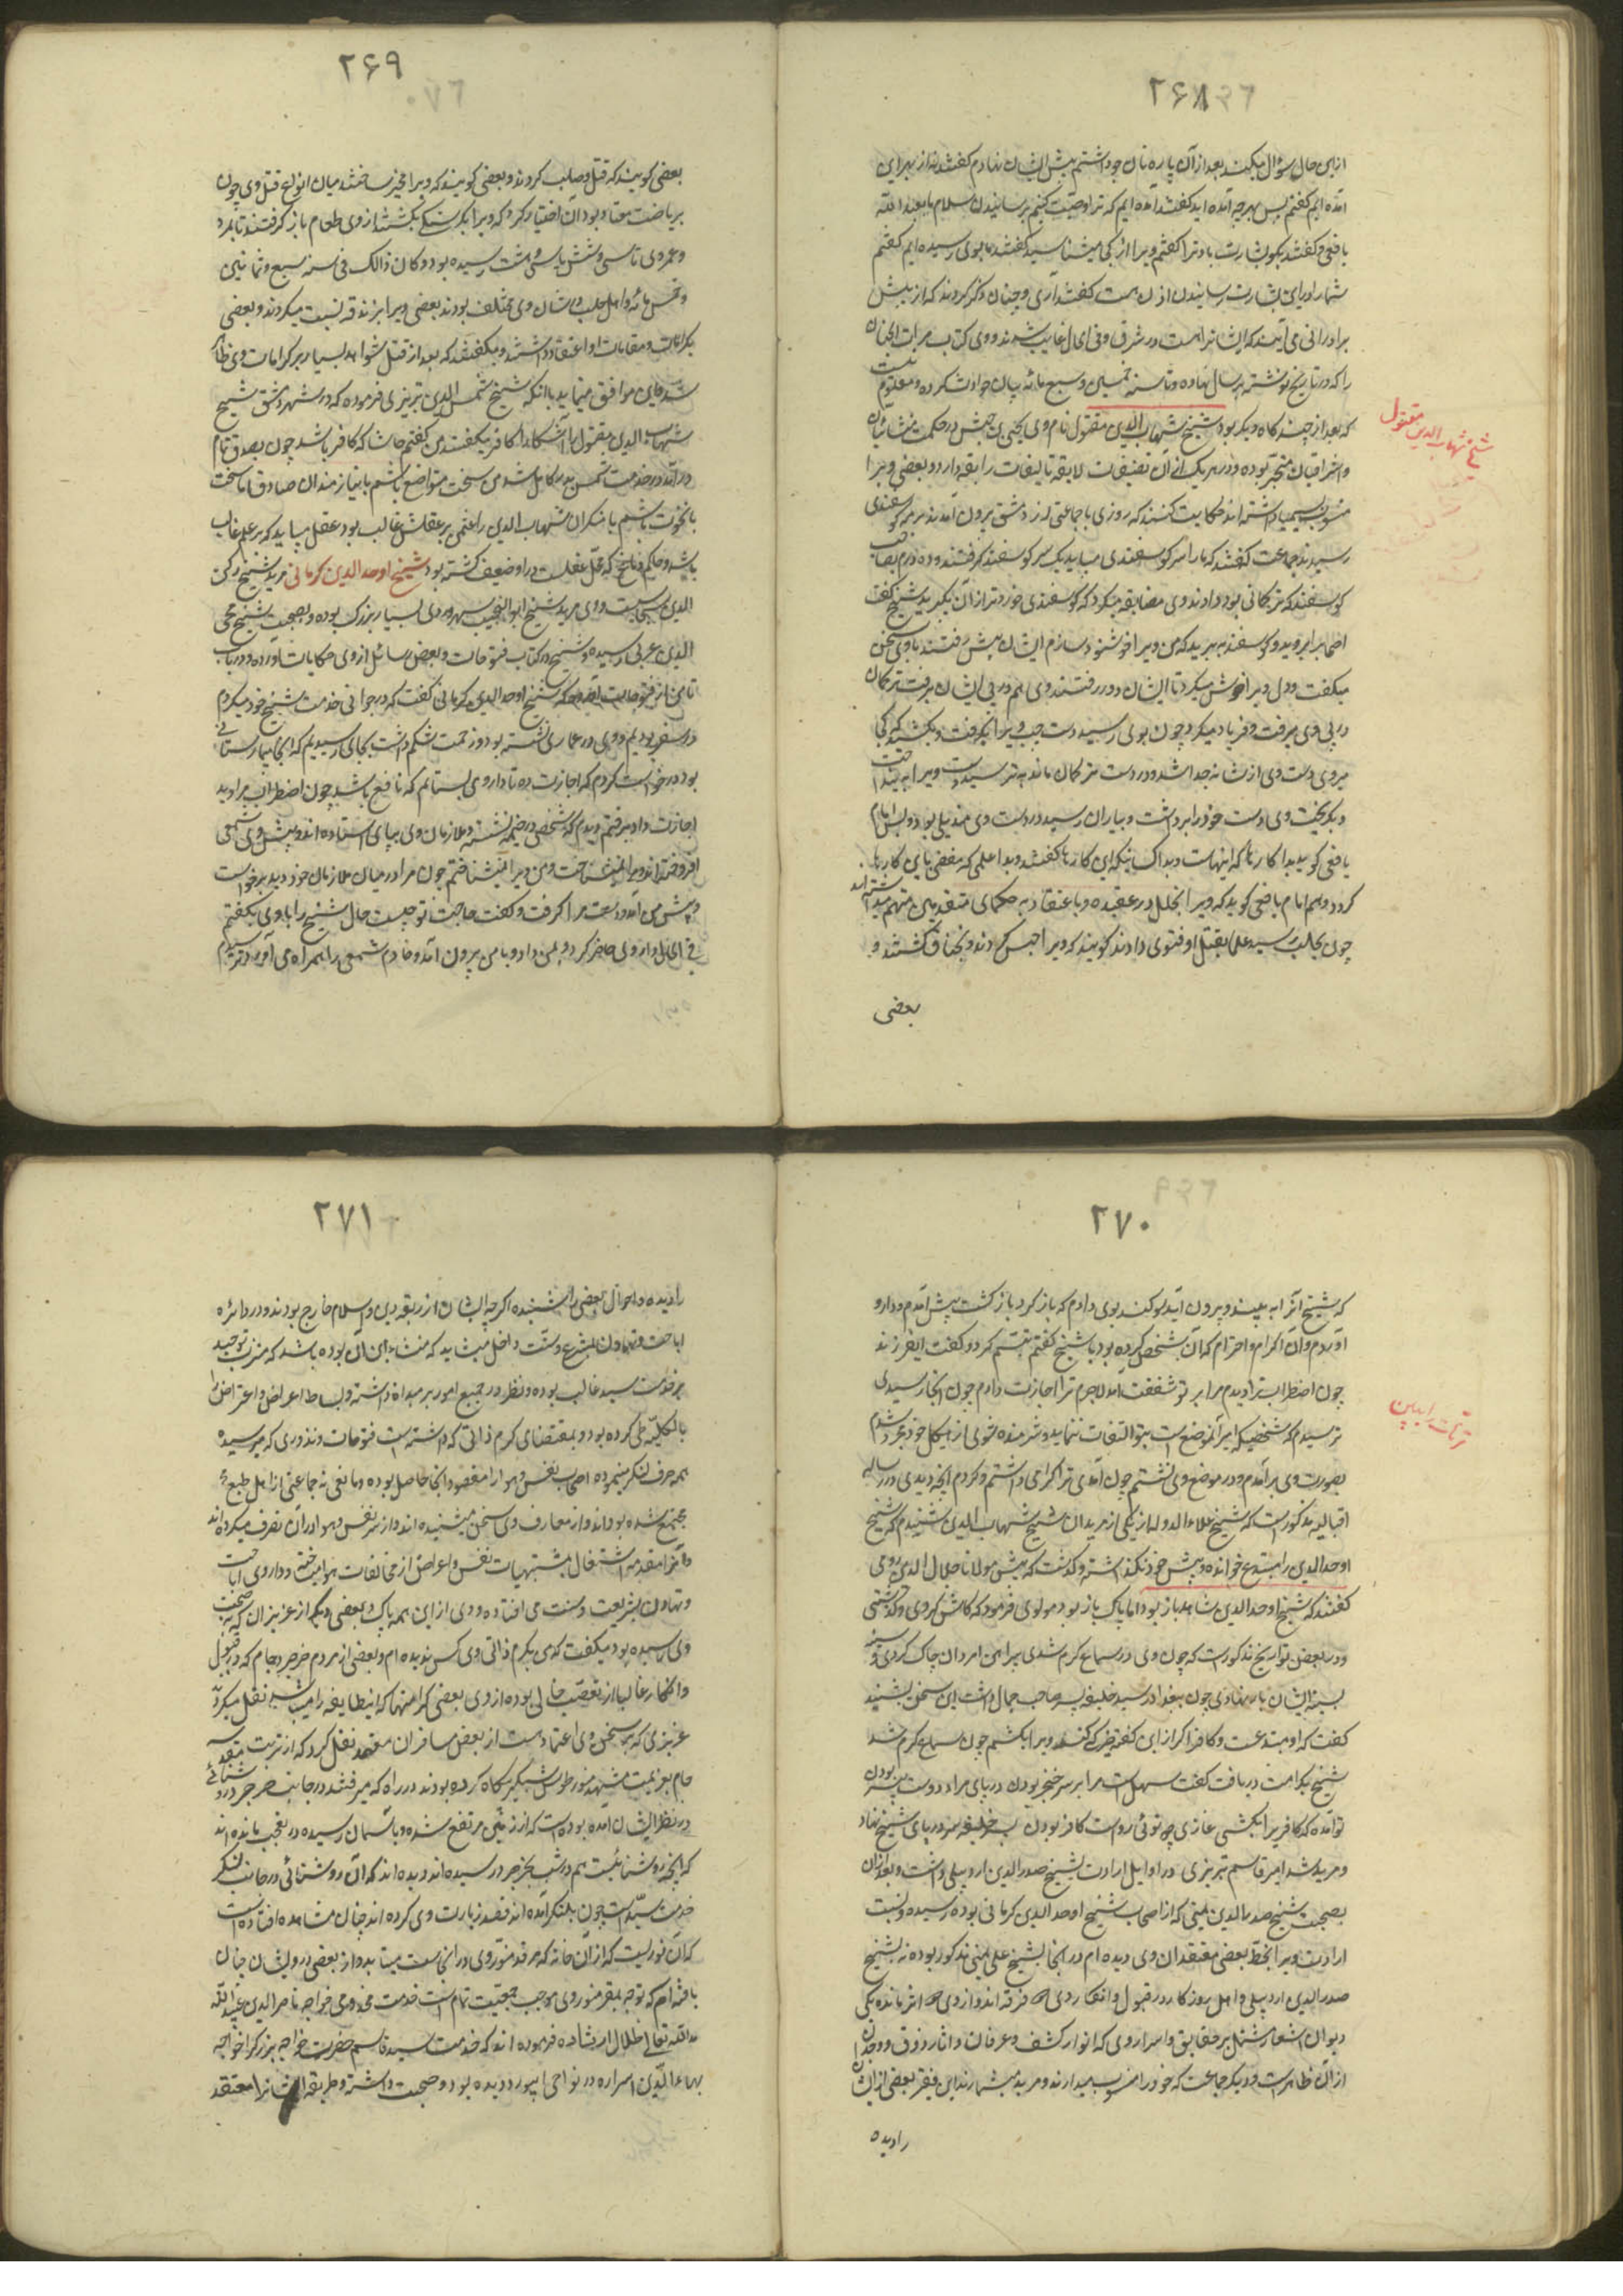 ۲۶۸
ازین حال سؤال میکنند بعد از آن پاره نان جو داشتم پیش ایشان نهادم گفتند نه از بهر این
آمده ایم گفتم پس بهر چه آمده اید گفتند آمده ایم که ترا وصیت کنیم برسانیدن سلام ما بعبد الله
یافعی و گفتند بگو بشارت باد ترا گفتم ویرا از کجا میشناسید گفتند ما بوی رسیده ایم گفتم
شما را درین بشارت رسانیدن اذن هست گفتند آری و چنان ذکر کردند که از پیش
برادرانی می آیند که ایشانرا هست در شرق و فی الحال غایب شدند و وی کتاب مرآت الجنان
را که در تاریخ نوشته بر سال نهاده و تا سنه خمسین و سبع مائه بیان حوادث کرده و معلوم نیست
که بعد از چند گاه دیگر بود شیخ شهاب الدین مقتول نام وی یحیی بن حبش در حکمت مشائیان
و اشراقیان متبحر بوده و در هر یک از آن تصنیفات لایقه تالیفات رایقه دارد و بعضی ویرا
منسوب بسیمیا داشته اند حکایت کنند که روزی با جماعتی از دمشق بیرون آمدند برمه گوسفندی
رسیدند جماعت گفتند که ما را سر گوسفندی میباید یک سر گوسفند گرفتند و ده درم بصاحب
گوسفند که ترکمانی بود دادند وی مضایقه میکرد که گوسفندی خوردتر از آن بگیرید شیخ گفت
اصحاب را بروید و گوسفند ببرید که من ویرا خوشنود سازم ایشان پیش رفتند با وی سخن
میگفت و دل ویرا خوش میکرد تا ایشان دور رفتند وی هم در پی ایشان برفت ترکمان
در پی وی میرفت و فریاد میکرد چون بوی رسید دست چپ ویرا بگرفت و بکشید که کجا
میروی دست وی از شانه جدا شد و در دست ترکمان ماند بترسید دست ویرا بینداخت
و بگریخت وی دست خود را برداشت و بیاران رسید در دست وی مندیلی بود و بس امام
یافعی گوید بدا کارها که اینهاست و بداکسانیکه این کارها کنند و بدا علمی که مفضی باین کارها
گردد و هم امام یافعی گوید که ویرا بخلل در عقیده و با عتقاد به حکمای متقدمین متهم میداشته اند
چون بحلب رسید علما بقتل او فتوی دادند گویند که ویرا حبس کردند و بخناق کشتند و
بعضی
شیخ شهاب الدین مقتول
۲۶۹
بعضی گویند که قتل و صلب کردند و بعضی گویند که ویرا مخیر ساختند میان انواع قتل وی چون
بریاضت معتاد بود آن اختیار کرد که ویرا بگرسنگی بکشند از وی طعام باز گرفتند تا بمرد
و عمر وی تا سی و شش یا سی و هشت رسیده بود و کان ذالک فی سنه سبع و ثمانین
و خمس مائه و اهل حلب در شان وی مختلف بودند بعضی ویرا بزندقه نسبت میکردند و بعضی
بکرامات و مقامات او اعتقاد داشتند و میگفتند که بعد از قتل شواهد بسیار بر کرامات وی ظاهر
شد و این موافق مینماید با آنکه شیخ شمس الدین تبریزی فرموده که در شهر دمشق شیخ
شهاب الدین مقتول را آشکارا کافر میگفتند من گفتم حاشا که کافر باشد چون بصدق تمام
درآمد در خدمت شمس بدر کامل شد من سخت متواضع باشم با نیازمندان صادق اما سخت
با نخوت باشم با منکران شهاب الدین را علمی بر عقلش غالب بود عقل میباید که بر علم غالب
باشد و حاکم دماغ که محل عقلست در او ضعیف گشته بود شیخ اوحد الدین کرمانی مرید شیخ رکن
الدین سجاسیست و وی مرید شیخ ابو النجیب سهروردی بسیار بزرگ بوده و بصحبت شیخ محی
الدین عربی رسیده و شیخ در کتاب فتوحات و بعضی رسائل از وی حکایات آورده و در باب
ثامن از فتوحات آورده که شیخ اوحد الدین کرمانی گفت که در جوانی خدمت شیخ خود میکردم
در سفر بودیم و وی در عماری نشسته بود و زحمت شکم داشت بجایی رسیدیم که آنجا بیمارستانی
بود در خواست کردم که اجازت ده تا داروی بستانم که نافع باشد چون اضطراب مرا دید
اجازت داد برفتم دیدم که شخصی در خیمه نشسته و ملازمان وی بپای استاده اند و پیش وی شمعی
افروخته اند و مرا نمیشناخت و من ویرا نمیشناختم چون مرا در میان ملازمان خود دید برخواست
و پیش من آمد و دست مرا گرفت و گفت حاجت تو چیست حال شیخ را با وی بگفتم
فی الحال داروی حاضر کرد و بمن داد و با من بیرون آمد و خادم شمعی را همراه می آورد ترسیدم
۲۷۰
که شیخ آنرا به بیند و بیرون آید سوگند بوی دادم که باز گرد باز گشت پیش آمدم و دارو
آوردم و آن اکرام و احترام که آن شخص کرده بود با شیخ گفتم تبسم کرد و گفت ای فرزند
چون اضطراب ترا دیدم مرا بر تو شفقت آمد لاجرم ترا اجازت دادم چون آنجا رسیدی
ترسیدم که شخصیکه امیر آنموضع است بتو التفات ننماید و شرمنده شوی از هیکل خود مجرد شدم
بصورت وی برآمدم و در موضع وی نشستم چون آمدی ترا گرامی داشتم و کردم آنچه دیدی در رساله
اقبالیه مذکور است که شیخ علاء الدوله از یکی از مریدان شیخ شهاب الدین شنیدم که شیخ
اوحد الدین را مبتدع خوانده و پیش خود نگذاشته و گذشت که پیش مولانا جلال الدین رومی
گفتند که شیخ اوحد الدین شاهد باز بود اما پاک باز بود مولوی فرمود که کاش کردی و گذشتی
و در بعضی تواریخ مذکور است که چون وی در سماع گرم شدی پیراهن امردان چاک کردی و سینه
بسینه ایشان باز نهادی چون ببغداد رسید خلیفه پسر صاحب جمال داشت این سخن بشنید
گفت که او مبتدعست و کافر اگر ازین گونه حرکتی کند ویرا بکشم چون سماع گرم شد
شیخ بکرامت دریافت گفت سهل است مرا بر سر خنجر بودن در پای مراد دوست بیسر بودن
تو آمده که کافر یرا بکشی غازی چو توئی رواست کافر بودن پسر خلیفه سر در پای شیخ نهاد
و مرید شد امیر قاسم تبریزی در اوایل ارادت بشیخ صدر الدین اردبیلی داشت و بعد از آن
بصحبت شیخ صدر الدین یمنی که از اصحاب شیخ اوحد الدین کرمانی بوده رسیده و نسبت
ارادت ویرا بخط بعضی معتقدان وی دیده ام در آنجا بشیخ علی یمنی مذکور بوده نه بشیخ
صدر الدین اردبیلی و اهل روزگار در قبول و انکار وی دو فرقه اند و از وی دو اثر مانده یکی
دیوان اشعار مشتمل بر حقایق و اسرار وی که انوار کشف و عرفان و آثار ذوق و وجدان
از آن ظاهر است و دیگر جماعت که خود را منسوب میدارند و مرید میشمارند این فقیر بعضی از ایشان
را دیده
۲۷۱
را دیده و احوال بعضی را شنیده اگر چه ایشان از ربقه دین و اسلام خارج بودند و در دائره
اباحت و تهاون بشرع و سنت داخل میشاید که منشاء این آن بوده باشد که مشرب توحید
بر خدمت سید غالب بوده و نظر در جمیع امور بر مبداء داشته و بساط اعراض و اعتراض را
بالکلیه طی کرده بود و بمقتضای کرم ذاتی که داشته است فتوحات و نذوری که میرسیده
همه صرف لنگر مینموده اصحاب نفس و هوا را مقصود آنجا حاصل بوده و مانعی نه جماعتی از اهل طبع
مجتمع شده بوداند و از معارف وی سخن میشنیده اند و از سر نفس و هوا در آن تصرف میکرده اند
و آنرا مقدمه اشتغال بمشتهیات نفس و اعراض از مخالفات هوا میساخته و در وادی اباحت
و تهاون بشریعت و سنت می افتاده و وی ازین همه پاک و بعضی دیگر از عزیزان که بصحبت
وی رسیده بود میگفت که من بکرم ذاتی وی کس ندیده ام و بعضی از مردم خرجرد جام که در قبول
و انکار غالبا از تعصب خالی بوده از وی بعضی کرامتها که اینطایفه را میباشد نقل میکرد
عزیزی که بر سخن وی اعتماد هست از بعضی مسافران نقل کرد که از تربت مقدسه
جام بعزیمت مشهد منور طوس شبگیر پگاه کرده بودند در راه که میرفتند در جانب خرجرد روشنائی
در نظر ایشان آمده بوده است که از زمین مرتفع شده و بآسمان رسیده در تعجب مانده اند
که آنچه روشنائیست هم در شب بخرجرد رسیده اند دیده اند که آن روشنائی در جانب لنگر
خدمت سید است چون بلنگر آمده اند قصد زیارت وی کرده اند چنان مشاهده افتاده است
که آن نوریست که از آن خانه که مرقد منور وی در آنجاست میتابد و از بعضی درویشان چنان
یافته ام که توجه بمقبر منور وی موجب جمعیت تمام است خدمت مخدومی خواجه ناصر الدین عبید الله
مد الله تعالی ظلال ارشاده فرموده اند که خدمت سید قاسم حضرت خواجه بزرگ را خواجه
بهاء الدین اسراره در نواحی ابیورد دیده بود و صحبت داشته و طریقه ایشانرا معتقد